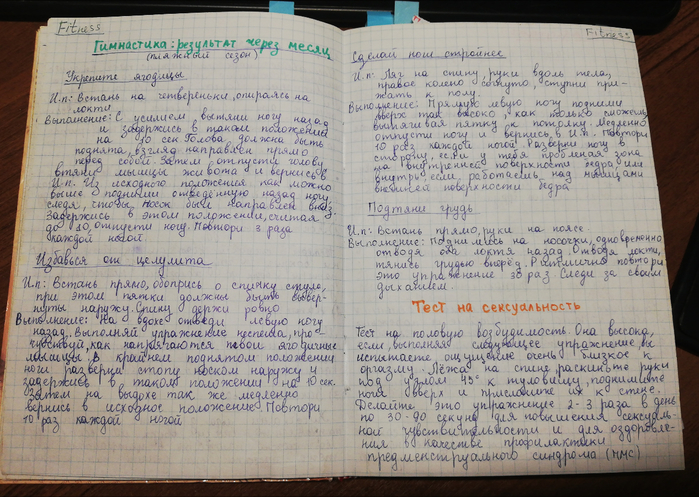 Fitness
Гимнастика: результат через месяц
(пляжный сезон)
Укрепите ягодицы
И.п: Встань на четвереньки, опираясь на
локти
Выполнение: С усилием вытяни ногу назад
и задержись в таком положении
на 10 сек. Голова должна быть
поднята, взгляд направлен прямо
перед собой. Затем отпусти голову,
втяни мышцы живота и вернись в
И.п. Из исходного положения как можно
выше поднимай отведённую назад ногу
следя, чтобы носок был направлен вниз.
Задержись в этом положении, считая
до 10, отпусти ногу. Повтори 3 раза
каждой ногой
Избавься от целлюлита
И.п: Встань прямо, обопрись о спинку стула,
при этом пятки должны быть вывер-
нуты наружу. Спину держи ровно
Выполнение: На вдохе отведи левую ногу
назад. Выполняй упражнение неспеша, про-
чувствуй, как напрягаются твои ягодичные
мышцы. В крайнем поднятом положении
ноги разверни стопу носком наружу и
задержись в таком положении на 10 сек.
Затем на выдохе так же медленно
вернись в исходное положение. Повтори
10 раз каждой ногой
Fitness
Сделай ноги стройнее
И.п: Ляг на спину, руки вдоль тела,
правое колено согнуто, ступни при-
жать к полу.
Выполнение: Прямую левую ногу подними
вверх так высоко, как только сможешь,
вытягивая пятку к потолку. Медленно
отпусти ногу и вернись в И.п. Повтори
10 раз каждой ногой. Разверни ногу в
сторону, если у тебя проблемная зона
на внутренней поверхности бедра или
внутрь если работаешь над мышцами
внешней поверхности бедра
Подтяни грудь
И.п: Встань прямо, руки на поясе
Выполнение: Поднимись на носочки, одновременно
отводя оба локтя назад. Отводя локти,
тянись грудью вперёд. Ритмично повтори
это упражнение 30 раз. Следи за своим
дыханием.
Тест на сексуальность
Тест на половую возбудимость. Она высока,
если, выполняя следующее упражнение, вы
испытаете ощущение очень близкое к
оргазму. Лёжа на спине, раскиньте руки
под углом 45° к туловищу, поднимите
ноги вверх и прислоните их к стене.
Делайте это упражнение 2-3 раза в день
по 30-90 секунд для повышения сексуаль-
ной чувствительности и для оздоровле-
ния в качестве профилактики
предменструального синдрома (ПМС)